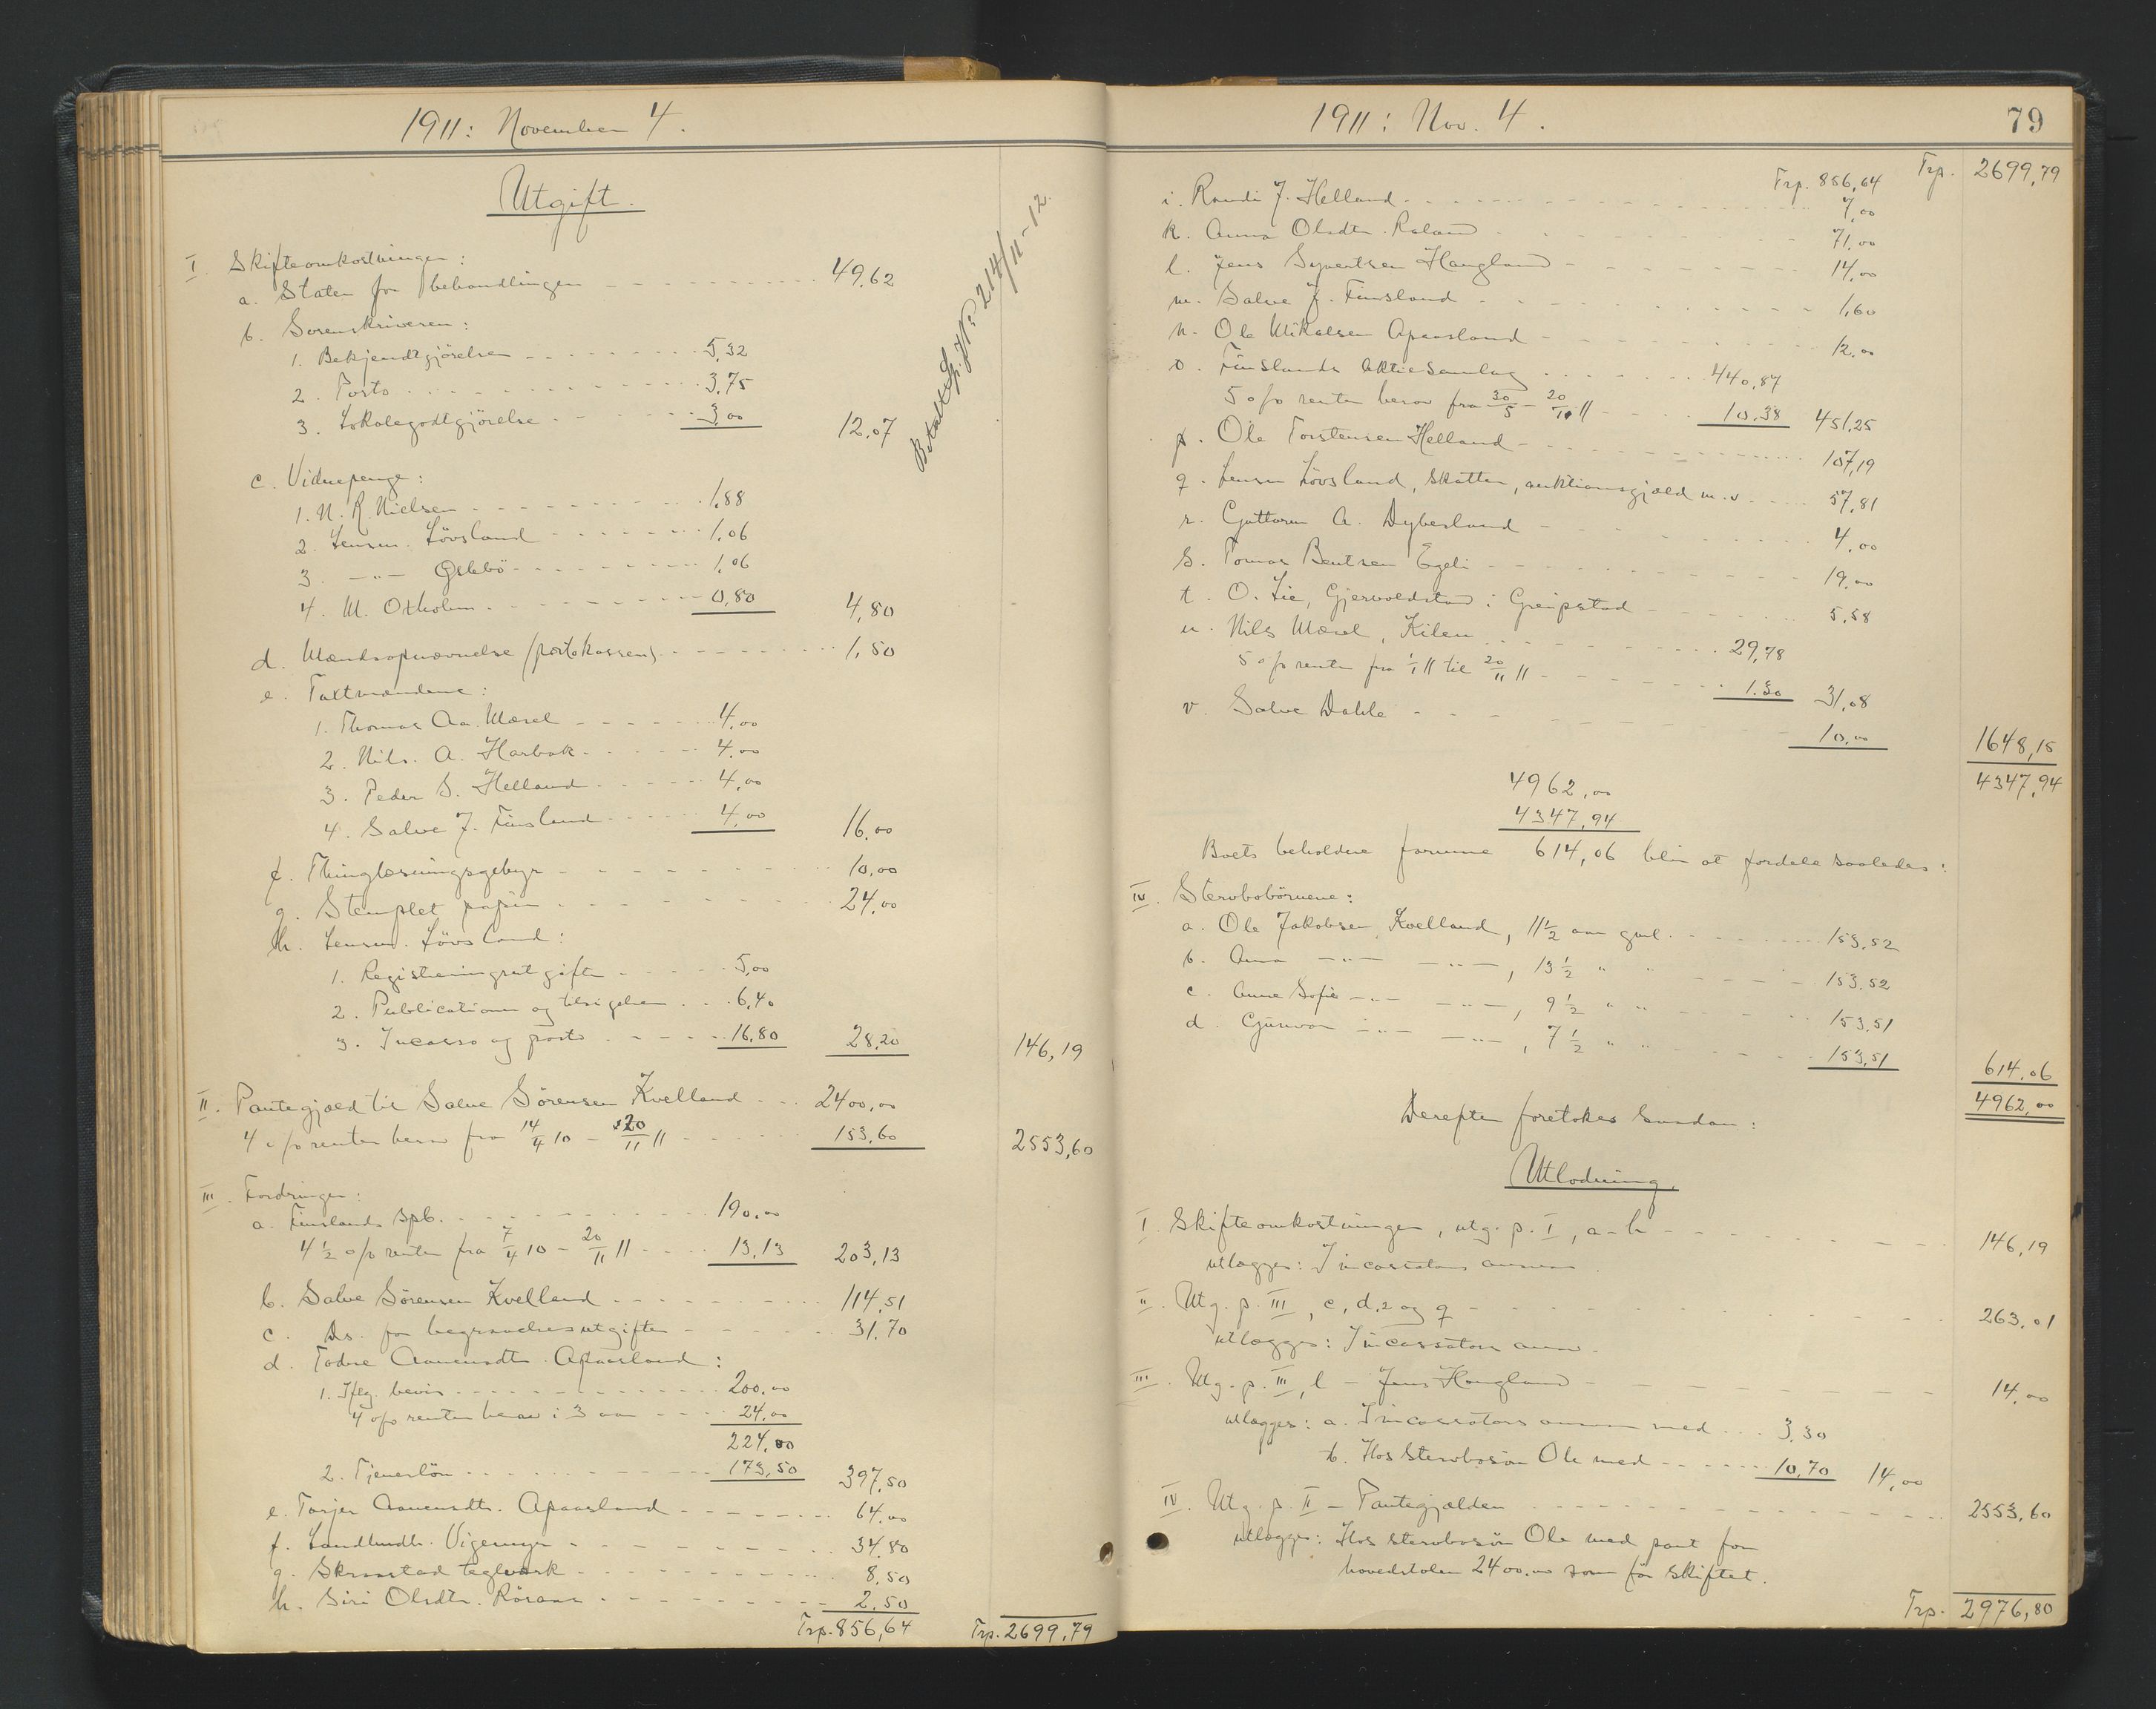 1911: November 4.
Utgift.
Betalt Sp. J.N. 214/11-12.
I. Skifteomkostninger:
a. Staten for behandlingen 49,62
b. Sorenskriveren:
1. Bekjendtgjörelsen 5,32
2. Porto 3,75
3. Lokalegodtgjörelse 3,00 12,07
c. Vidnepenge:
1. N. R. Nielsen 1,88
2. Lensm. Lövsland 1,06
3. —"— Öslebö 1,06
4. M. Oxholm 0,80 4,80
d. Mændsopnævnelse (portokassen) 1,50
e. Taxtmændene:
1. Thomas Aa. Mæsel 4,00
2. Nils A. Harbak 4,00
3. Peder S. Helland 4,00
4. Salve J. Finsland 4,00 16,00
f. Thinglæsningsgebyr 10,00
g. Stemplet papir 24,00
h. Lensm. Lövsland:
1. Registreringsutgifter 5,00
2. Publicationer og tilsigelsen 6,40
3. Incasso og porto 16,80 28,20 146,19
II. Pantegjæld til Salve Sörensen Kvelland 2400,00
4 o/o renter herav fra 14/4 10 – 20/11 11 153,60 2553,60
III. Fordringer:
a. Finslands Spb. 190,00
4 1/2 o/o renter fra 7/4 10 – 20/11 11 13,13 203,13
b. Salve Sörensen Kvelland 114,51
c. Ds. for begravelsesutgifter 31,70
d. Todne Aanensdtr. Apaasland:
1. Iflg. bevis 200,00
4 o/o renter herav i 3 aar 24,00
224,00
2. Tjenerlön 173,50 397,50
e. Tarjer Aanensdtr. Apaasland 64,00
f. Landhndl. Vigemyr 34,80
g. Skraastad teglverk 8,50
h. Siri Olsdtr. Röraas 2,50
Trp. 856,64 Trp. 2699,79
1911: Nov. 4. 79
Trp. 856,64 Trp. 2699,79
i. Randi J. Helland 7,00
k. Anna Olsdtr. Raland 71,00
l. Jens Syvertsen Haugland 14,00
m. Salve J. Finsland 1,60
n. Ole Mikalsen Apaasland 12,00
o. Finslands Aktiesamlag 440,87
5 o/o renter herav fra 30/5 – 20/11 11 10,38 451,25
p. Ole Torstensen Helland 107,19
q. Lensm Lövsland, skatter, auktionsgjæld m.v. 57,81
r. Guttorm A. Dybesland 4,00
s. Tomas Bentsen Egeli 19,00
t. O. Lie, Gjervoldstad i Greipstad 5,58
u. Nils Mæsel, Kilen 29,78
5 o/o renter fra 1/1 11 til 20/11 11 1.30 31,08
v. Salve Dahle 10,00 1648,15
4347,94
4962,00
4347,94
Boets beholdne formue 614,06 blir at fordele saaledes:
IV. Stervbobörnene:
a. Ole Jakobsen Kvelland, 11 1/2 aar gml. 153,52
b. Anna —"— —"—, 13 1/2 " " 153,52
c. Anne Sofie —"— —"—, 9 1/2 " " 153,51
d. Gunvor —"— —"—, 7 1/2 " " 153,51 614,06
4962,00
Derefter foretokes saadan:
Utlodning.
I. Skifteomkostninger, utg. p. I, a-h 146,19
utlægges: Incassators ansvar
II. Utg. p. III, c, d,2 og q 263,01
utlægges: Incassators ansv.
III. Utg. p. III, l – Jens Haugland 14,00
utlægges: a. Incassators ansvar med 3,30
b. Hos Stervbosön Ole med 10,70 14,00
IV. Utg. p. II – Pantegjælden 2553,60
utlægges: Hos stervbosön Ole med pant for
hovedstolen 2400,00 som för skiftet.
Trp. 2976,80